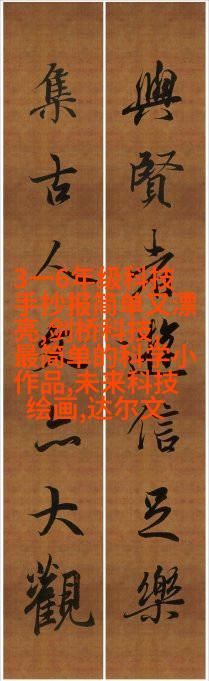 與賢者遊信足樂
集古人亦大觀
3一6年级科技
手抄报简单又漂
亮,剑桥科技,
最简单的科学小
作品,未来科技
绘画,达尔文